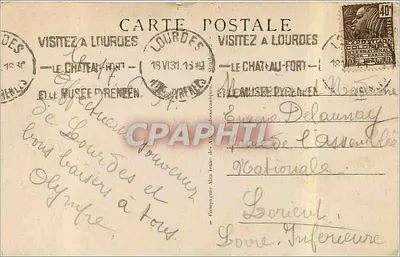 CARTE POSTALE
LOURDES
VISITEZ A LOURDES
LE CHATEAU-FORT
ET LE MUSÉE PYRÉNÉEN
LOURDES
18 VI 31
VISITEZ A LOURDES
LE CHATEAU-FORT
ET LE MUSÉE PYRÉNÉEN
40c
Affectueux souvenir
de Lourdes et
bons baisers à tous
Olympe.
CPAPHIL
Monsieur
Eugène Delaunay
de l'Assemblée
Nationale
Lorient
Loire Inférieure